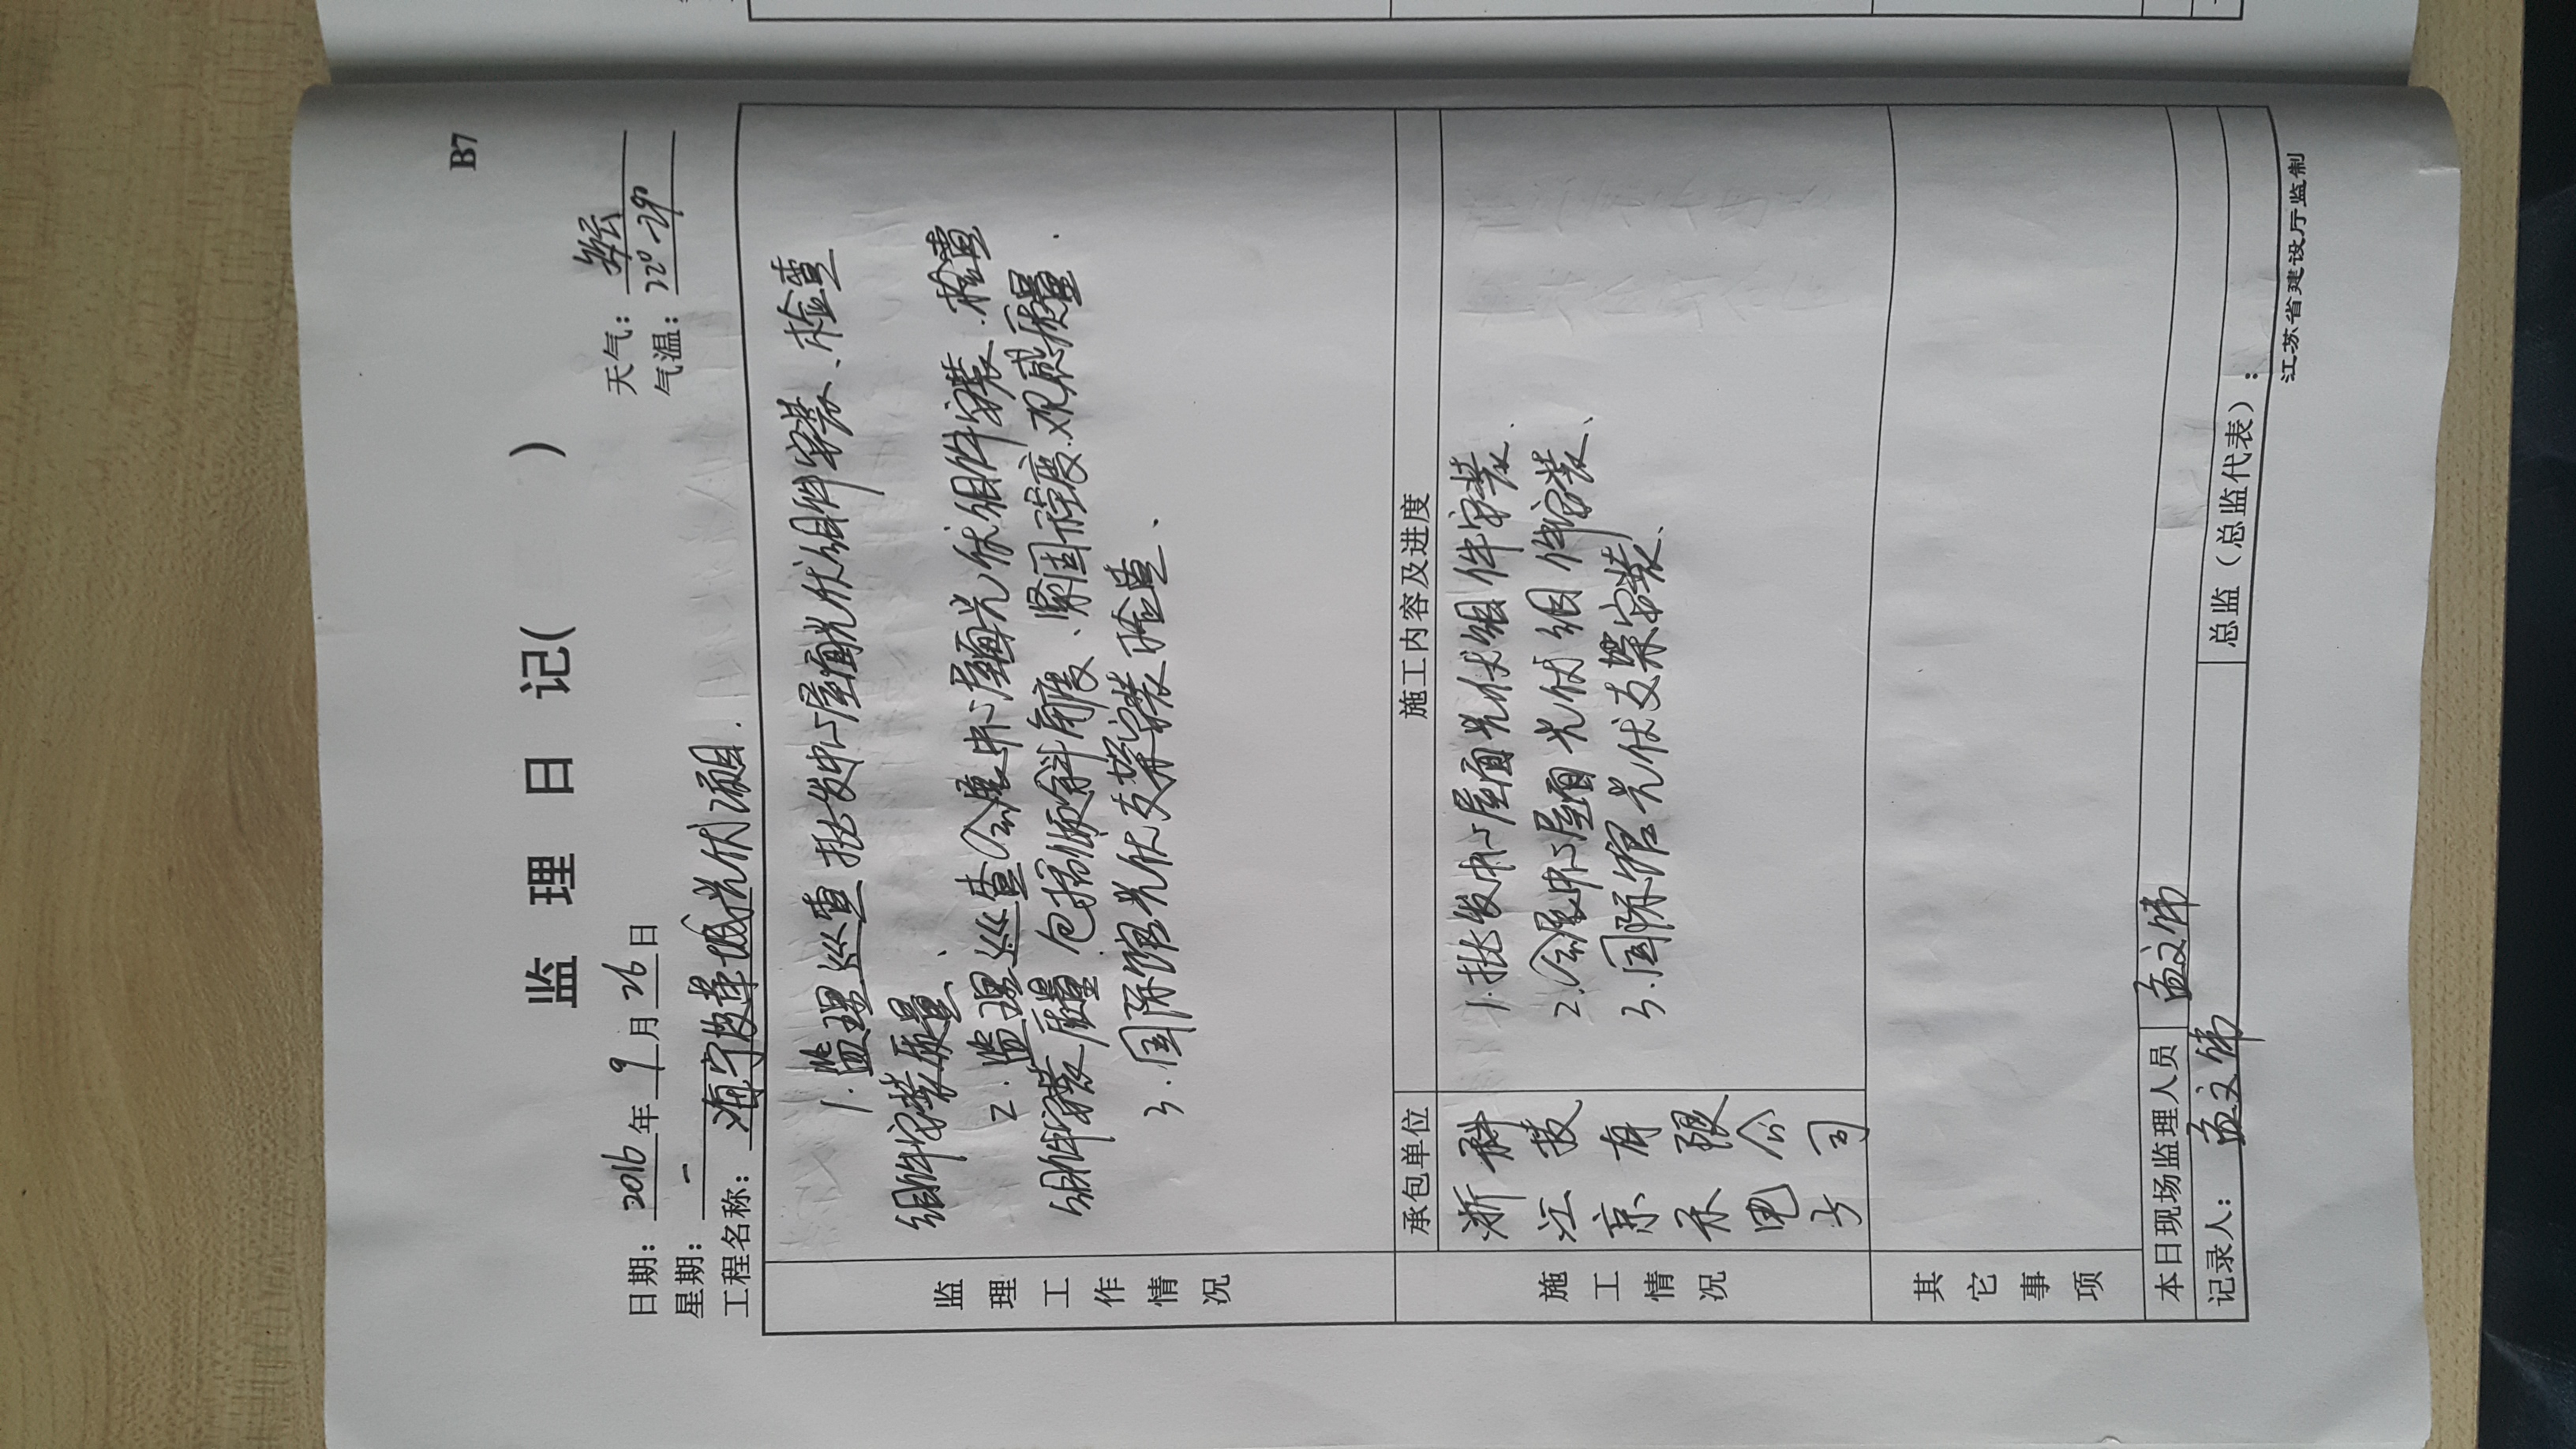 B7
监 理 日 记( )
日期：2016年9月26日 天气：多云
星期：一 气温：22°-29°
工程名称：海宁皮革城光伏项目.
监理工作情况
1.监理巡查批发中心屋面光伏组件安装、检查
组件安装质量、
2.监理巡查会展中心屋面光伏组件安装.检查
组件安装质量.包括倾斜角度、紧固程度.观感质量.
3.国际馆光伏支架安装检查、
施工情况
承包单位 施工内容及进度
浙江京禾电子科技有限公司
1.批发中心屋面光伏组件安装.
2.会展中心屋面光伏组件安装、
3.国际馆光伏支架安装、
其它事项
本日现场监理人员 孟文伟
记录人：孟文伟 总监（总监代表）：
江苏省建设厅监制